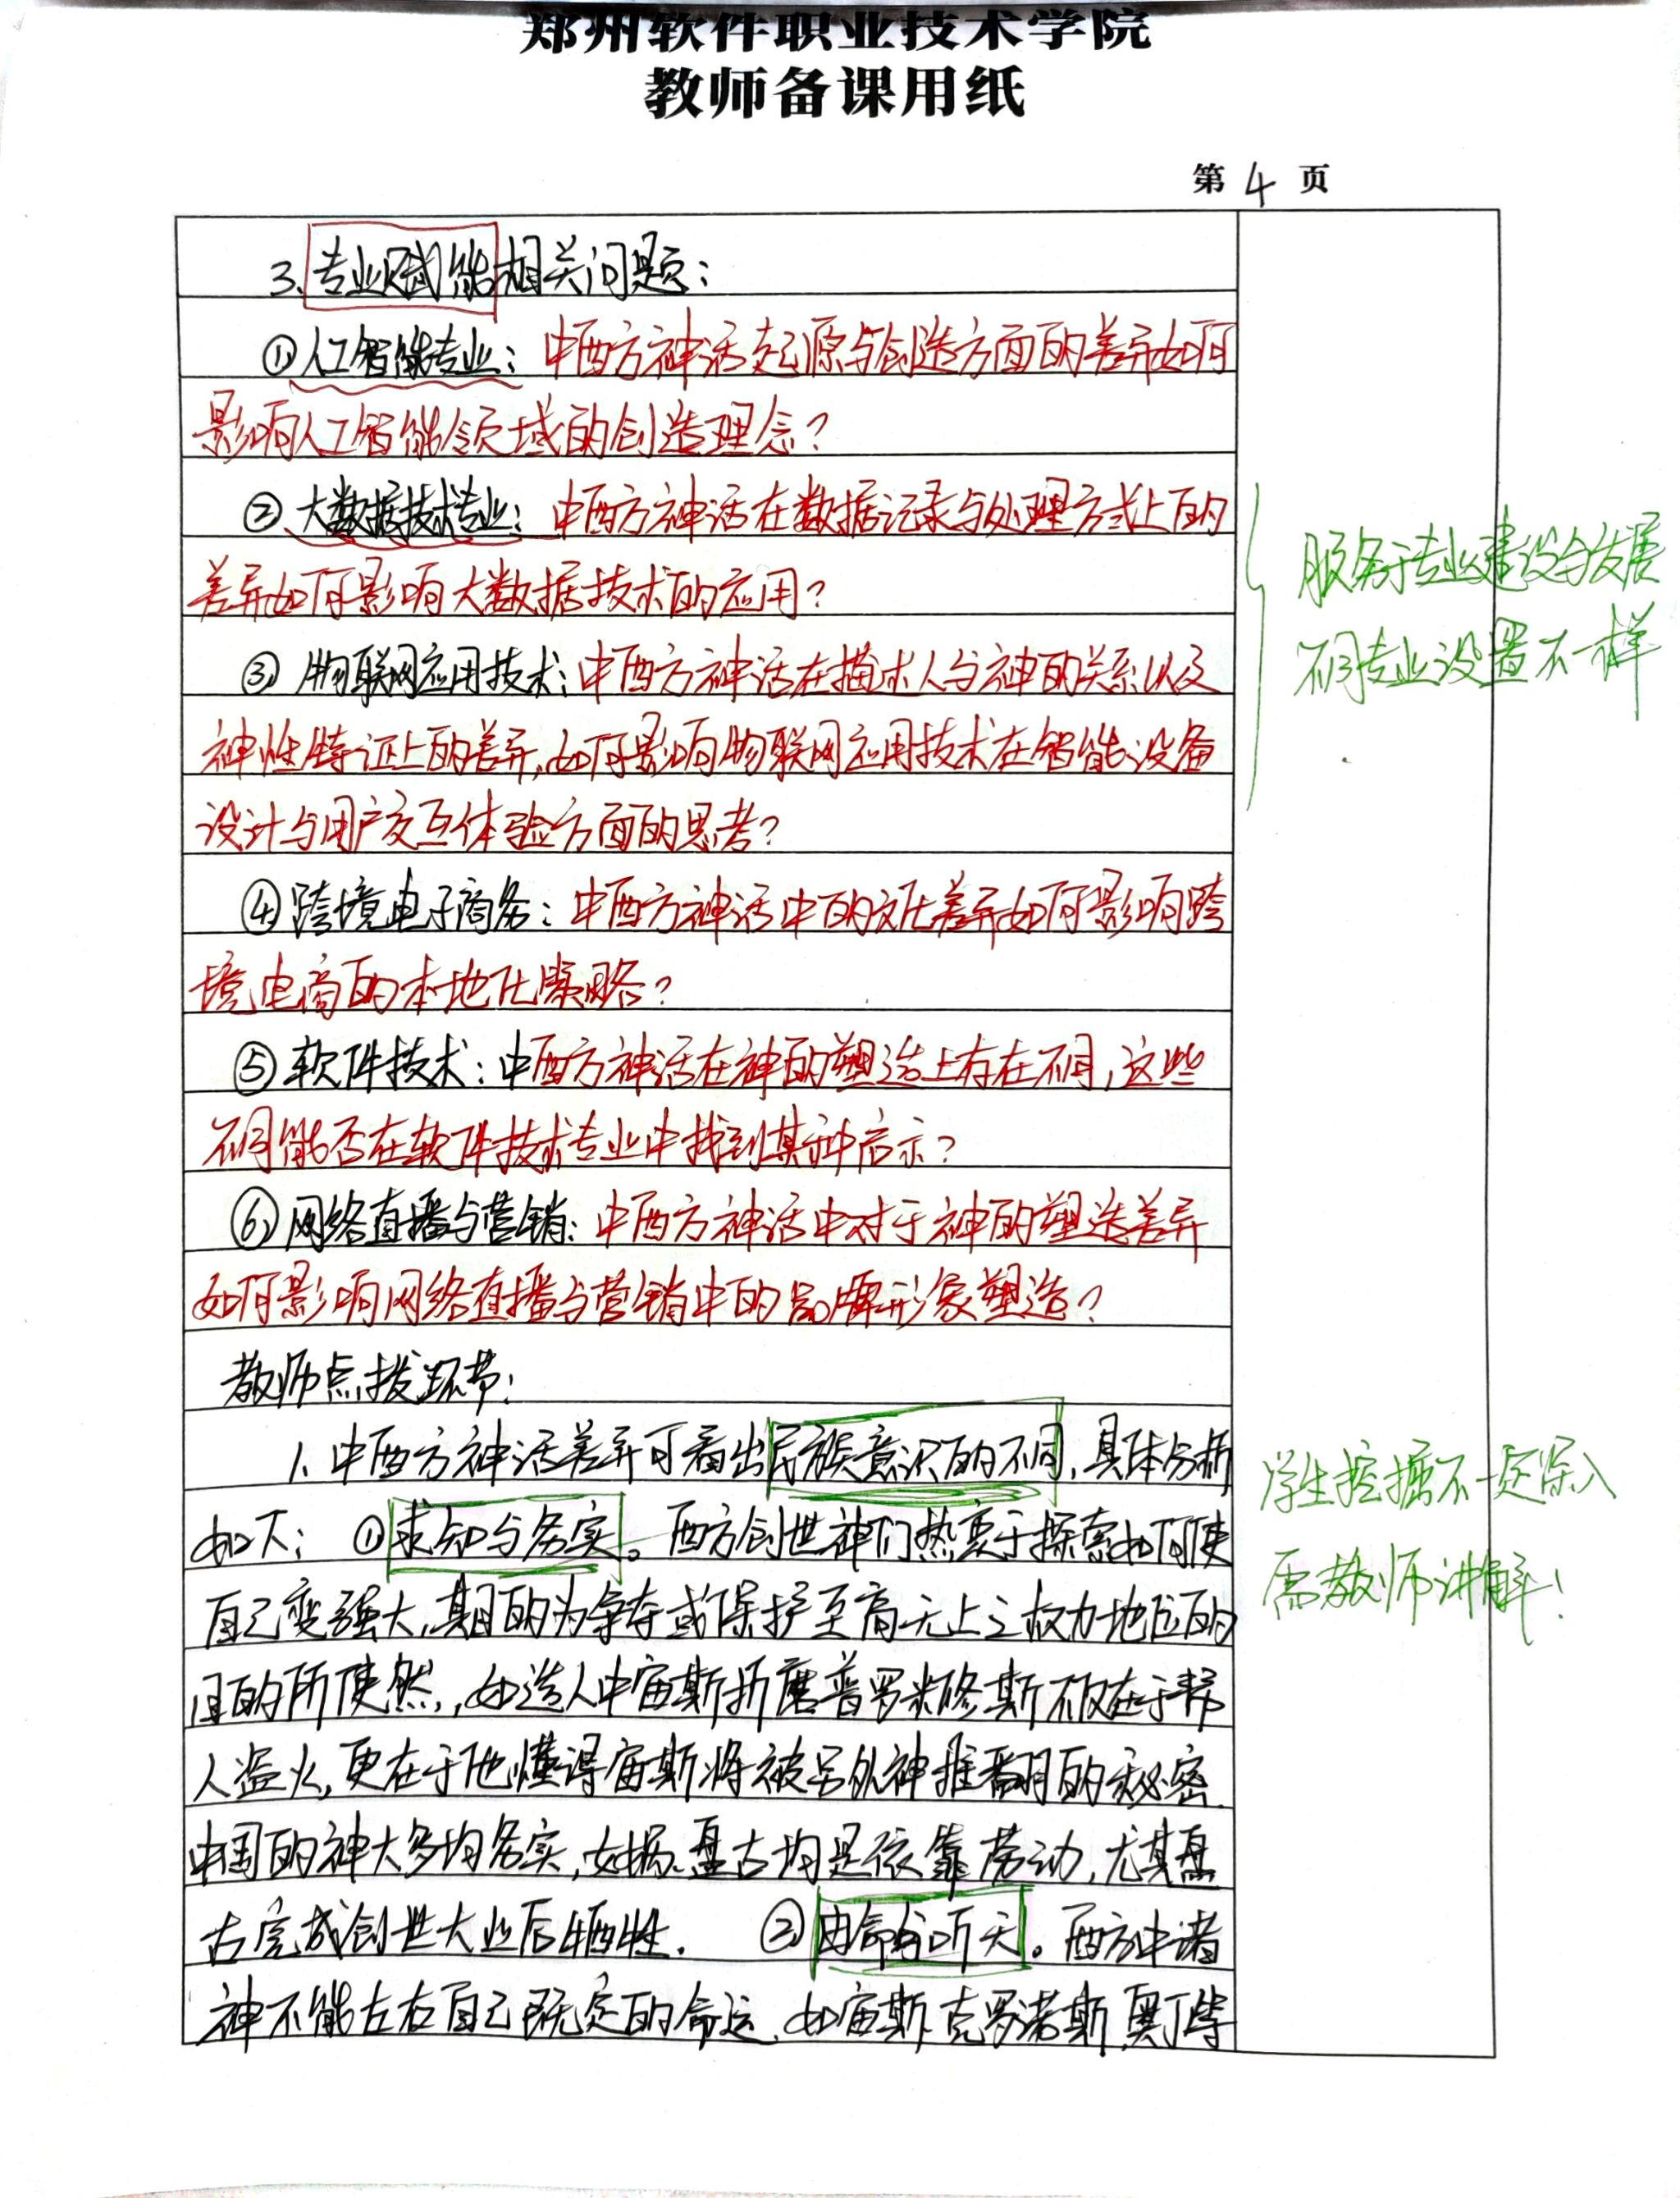 郑州软件职业技术学院
教师备课用纸
第 4 页
3、专业赋能相关问题：
①人工智能专业：中西方神话起源与创造方面的差异如何
影响人工智能领域的创造理念？
②大数据技术专业：中西方神话在数据记录与处理方式上的
差异如何影响大数据技术的应用？
③物联网应用技术：中西方神话在描述人与神的关系以及
神性特征上的差异，如何影响物联网应用技术在智能设备
设计与用户交互体验方面的思考？
④跨境电子商务：中西方神话中的文化差异如何影响跨
境电商的本地化策略？
⑤软件技术：中西方神话在神的塑造上存在不同，这些
不同能否在软件技术专业中找到某种启示？
⑥网络直播与营销：中西方神话中对于神的塑造差异
如何影响网络直播与营销中的品牌形象塑造？
服务于专业建设与发展
不同专业设置不一样
教师点拨环节：
1、中西方神话差异可看出民族意识的不同，具体分析
如下：①求知与务实。西方创世神们热衷于探索如何使
自己变强大，其目的为争夺或保护至高无上之权力地位的
目的所使然，如造人中宙斯折磨普罗米修斯不仅在于帮
人盗火，更在于他懂得宙斯将被另外神推翻的秘密。
中国的神大多均务实，如娲、盘古均是依靠劳动，尤其盘
古完成创世大业后牺牲。 ②由命与听天。西方中诸
神不能左右自己既定的命运，如宙斯、克罗诺斯、奥丁等
学生挖掘不一定深入
需教师讲解！